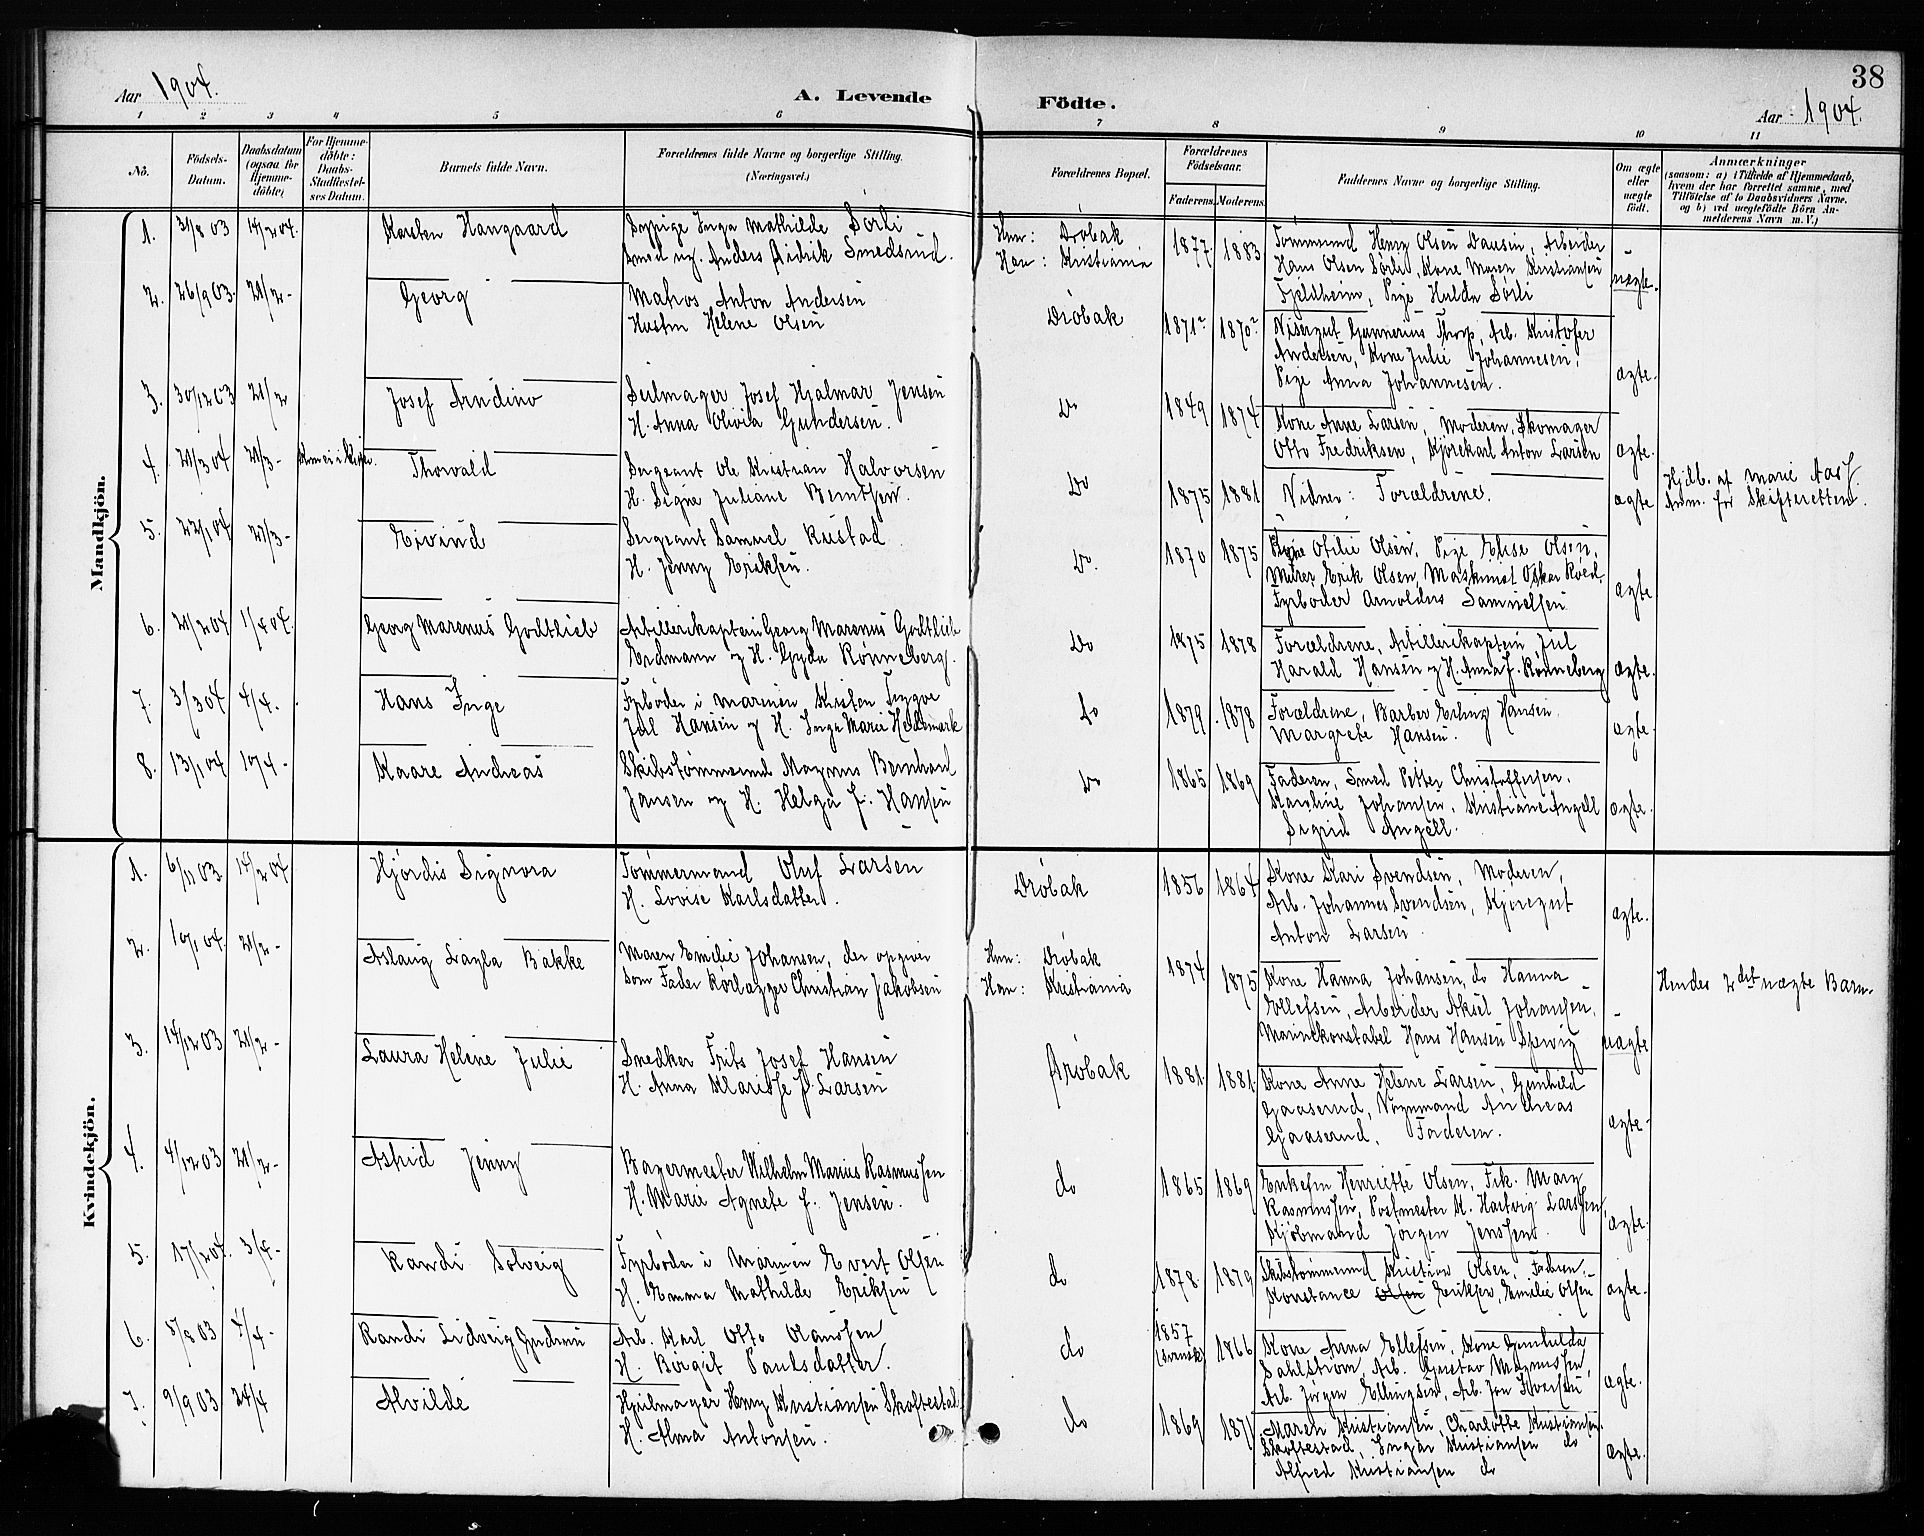 Aar 1904.
A. Levende Födte.
38
Aar 1904.
1 2 3 4 5 6 7 8 9 10 11
No.
Födsels-Datum.
Daabsdatum (ogsaa for Hjemmedöbte)
For Hjemmedöbte: Daabs-Stadfestelses Datum.
Barnets fulde Navn.
Forældrenes fulde Navne og borgerlige Stilling. (Næringsvei.)
Forældrenes Bopæl.
Forældrenes Födselsaar.
Faderens Moderens
Faddernes Navne og borgerlige Stilling.
Om ægte eller uægte födt.
Anmærkninger
(saasom: a) i Tilfælde af Hjemmedaab,
hvem der har forrettet samme, med
Tilföielse af to Daabsvidners Navne.
og b) ved uægtefödte Börn An-
melderens Navn m. V.)
Mandkjön.
1. 31/8 03 14/2 04. Karsten Haugaard
Inga Mathilde Sørli
Smed ug. Anders Didrik Smedsrud.
Hun: Drøbak
Han: Kristiania
1877. 1883
Tømmermand Henry Olsen Dausen, Arbeider
Hans Olsen Sørli, Kone Maren Kristiansen
Fjeldheim, Pige Hulda Sørli
uægte.
2. 26/9 03. 21/2 - Georg
Anton Andersen
Hustru Helene Olsen
Drøbak
1871 1870
Visergut Gunnerius Thorp, Arb. Kristofer
Andersen, Kone Julie Johannesen,
Pige Anna Johannesen.
ægte.
3. 30/12 03 21/2 Josef Arndino
Seilmager Josef Hjalmar Jensen
H. Anna Olivia Gundersen.
Do
1849 1874
Kone Anne Larsen, Moderen, Skomager
Otto Fredriksen, Kjørekarl Anton Larsen
ægte.
4. 21/3 04 21/3 - Thorvald
Sergeant Ole Kristian Halvorsen
H. Signe Juliane Berntsen.
Do
1875 1881
Vidner: Forældrene.
ægte
Hjdb. af Marie Aas f.
Anm. for Skifteretten.
5. 22/1 04 27/3 - Eivind
Sergeant Samuel Rustad
H. Jenny Eriksen.
Do.
1870 1875
Pige Otilie Olsen, Pige Elise Olsen,
Murer Erik Olsen, Maskinist Oskar Roed,
Fyrbøder Arnoldus Samuelsen
ægte
6. 21/2 04 1/4 04. Georg Marenus Godtlieb
Artillerikaptein Georg Marenus Godtlieb
Erdmann og H. Gyda Rønneberg.
Do
1875 1878
Forældrene, Artillerikaptein Jul
Harald Hansen og H. Anna f. Rønneberg
ægte.
7. 3/3 04 4/4. Hans Inge
Fyrbøder i Marinen Kristen Trygve
Jul Hansen og H. Inga Marie Hedemark
Do
1879. 1878
Forældrene, Barber Erling Hansen,
Margrete Hansen.
ægte.
8. 13/1 04 10/4 - Kaare Andreas
Skibstømmermd Magnus Bernhard
Jansen og H. Helga f. Hansen
Do
1865 1869
Faderen, Smed Petter Christoffersen,
Karoline Johansen, Kristiane Angell
Sigrid Angell.
ægte.
Kvindekjön.
1. 6/11 03. 14/2 04 Hjørdis Signora
Tømmermand Oluf Larsen
H. Lovise Karlsdatter.
Drøbak
1856 1864
Kone Kari Svendsen, Moderen,
Arb. Johannes Svendsen, Kjøregut
Anton Larsen
ægte.
2. 10/1 04. 21/2 - Aslaug Layla Bakke
Maren Emilie Johansen, der opgiver
som Fader Rørlægger Christian Jakobsen
Hun: Drøbak
Han: Kristiania
1874 1875
Kone Hanna Johansen, do Hanna
Ellefsen, Arbeider Aksel Johansen,
Marinekonstabel Hans Hansen
uægte
Hendes 2det uægte Barn.
3. 14/12 03 21/2 - Laura Helene Julie
Snedker Frits Josef Hansen
H. Anna Klarisse f. Larsen
Drøbak
1881. 1881.
Kone Anne Helene Larsen, Gunhild
Gaaserud, Vognmand Andreas
Gaaserud, Faderen.
ægte-
4. 4/12 03 21/2 - Astrid Jenny
Bagermester Wilhelm Marius Rasmussen
H. Marie Agnete f. Jensen.
do
1865 1869
Enkefru Henriette Olsen, Frk. Mary
Rasmussen, Postmester M. Hartvig Larssen,
Kjøbmand Jørgen Jenssen.
ægte.
5. 17/2 04. 3/4 - Randi Solveig
Fyrbøder i Marinen Evert Olsen
H. Emma Mathilde Eriksen
do
1878. 1879
Skibstømmermd Kristian Olsen, Faderen,
Konstance Olsen Eriksen, Emilie Olsen
ægte.
6. 5/8 03 4/4 - Randi Lidveig Gudrun
Arb. Karl Otto Olaussen
H. Birgit Paulsdatter.
do
1857 (svensk) 1866
Kone Anna Ellefsen, Kone Gunhilda
Dahlstrøm, Arb. Gustav Magnussen,
Arb. Jørgen Ellingsen, Arb. Jon Iversen
ægte.
7. 9/9 03 24/4 Alvilde
Hjulmager Henry Kristiansen Skoftestad
H. Alma Antonsen.
do
1869 1871
Maren Kristiansen, Charlotte Kristiansen
Skoftestad, Ingar Kristiansen do
Alfred Kristiansen do
ægte.